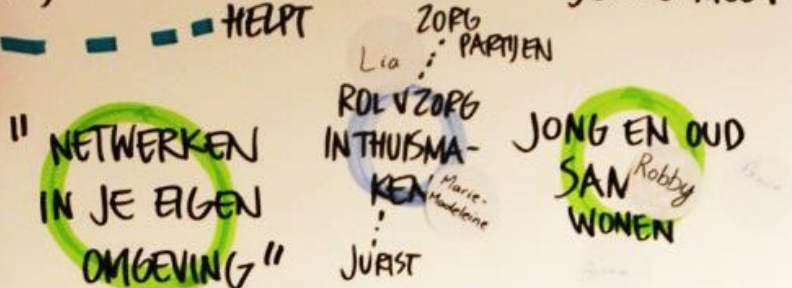 HELPT
ZORG
PARTIJEN
Lia
"NETWERKEN
IN JE EIGEN
OMGEVING"
ROL V ZORG
IN THUISMA-
KEN
Marie-
Madeleine
JURIST
JONG EN OUD
SAN
Robby
WONEN